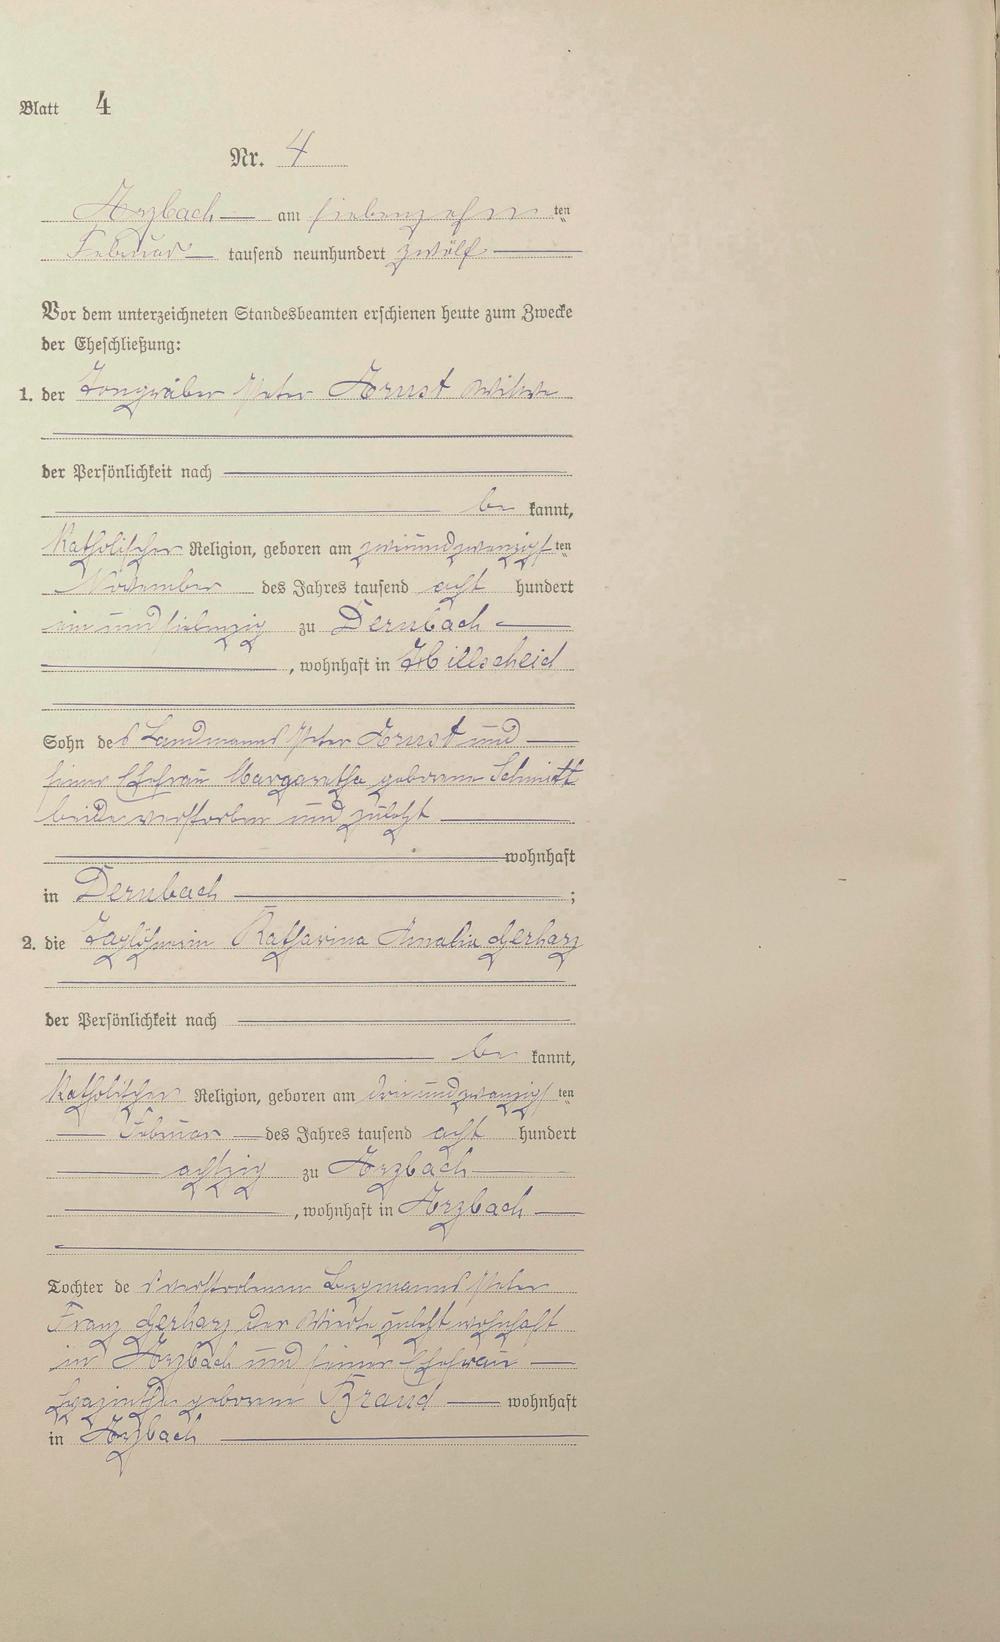 Blatt 4
Nr. 4
Arzbach am siebenzehn ten
Februar tausend neunhundert zwölf
Vor dem unterzeichneten Standesbeamten erschienen heute zum Zwecke
der Eheschließung:
1. der Tongräber Peter Ernst Witwer
der Persönlichkeit nach
be kannt,
Katholischer Religion, geboren am zweiundzwanzigs ten
November des Jahres tausend acht hundert
ein und siebenzig zu Dernbach
, wohnhaft in Hillscheid
Sohn des Landmanns Peter Ernst und
seiner Ehefrau Margaretha geborene Schmitt
beide verstorben und zuletzt
wohnhaft
in Dernbach ;
2. die Taglöhnerin Katharina Amalia Gerharz
der Persönlichkeit nach
be kannt,
Katholischer Religion, geboren am dreiundzwanzigs ten
Februar des Jahres tausend acht hundert
achtzig zu Arzbach
, wohnhaft in Arzbach
Tochter de s verstorbenen Bergmanns Peter
Franz Gerharz der zuletzt wohnhaft
in Arzbach und seiner Ehefrau
geborene Brand wohnhaft
in Arzbach